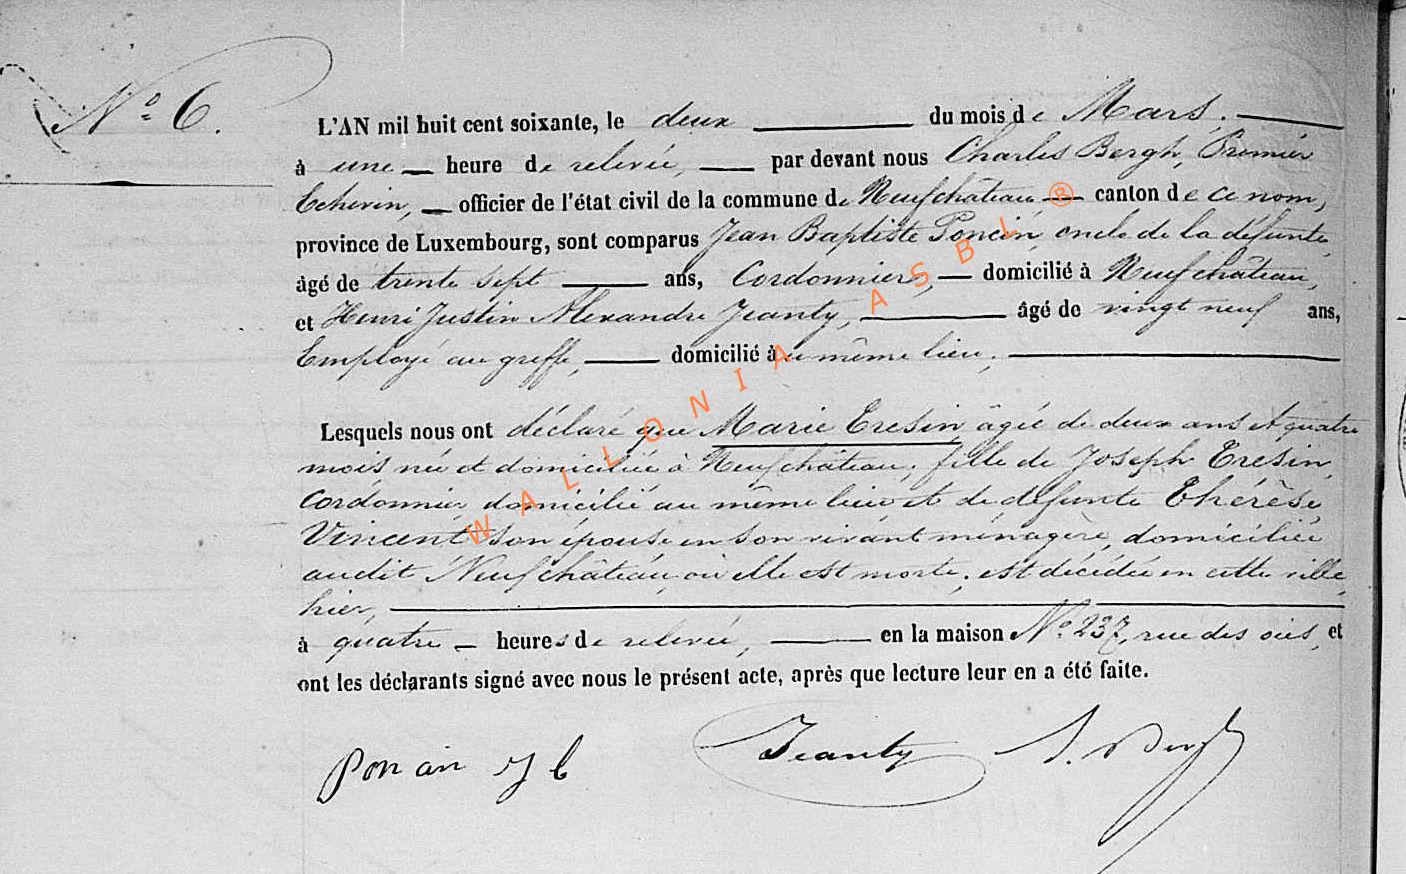 N° 6.
L'AN mil huit cent soixante, le deux du mois de Mars.
à une heure de relevée, par devant nous Charles Bergh, Premier
Echevin, officier de l'état civil de la commune de Neufchâteau canton de ce nom,
province de Luxembourg, sont comparus Jean Baptiste Poncin, oncle de la défunte,
âgé de trente sept ans, Cordonnier, domicilié à Neufchâteau,
et Henri Justin Alexandre Jeanty, âgé de vingt neuf ans,
Employé au greffe, domicilié au même lieu,
Lesquels nous ont déclaré que Marie Eresin âgée de deux ans et quatre
mois née et domiciliée à Neufchâteau, fille de Joseph Eresin,
Cordonnier domicilié au même lieu et de défunte Thérèse
Vincent son épouse en son vivant ménagère, domiciliée
audit Neufchâteau, où elle est morte, est décédée en cette ville
hier,
à quatre heures de relevée, en la maison N° 237, rue des oies, et
ont les déclarants signé avec nous le présent acte, après que lecture leur en a été faite.
Poncin J b Jeanty
WALLONIA ASBL ®